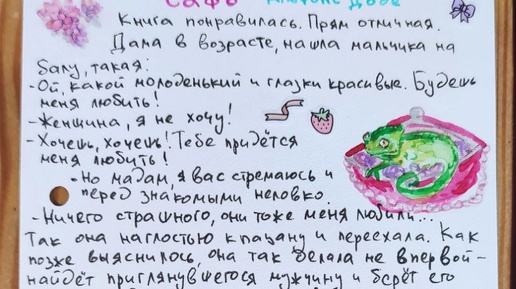 САФО Альфонс Доде
Книга понравилась. Прям отличная.
Дама в возрасте, нашла мальчика на
балу, такая:
- Ой, какой молоденький и глазки красивые. Будешь
меня любить!
- Женщина, я не хочу!
- Хочешь, хочешь! Тебе придётся
меня любить!
- Но мадам, я вас стремаюсь и
перед знакомыми неловко.
- Ничего страшного, они тоже меня любили...
Так она наглостью к пацану и переехала. Как
позже выяснилось, она так делала не впервой -
найдёт приглянувшегося мужчину и берёт его